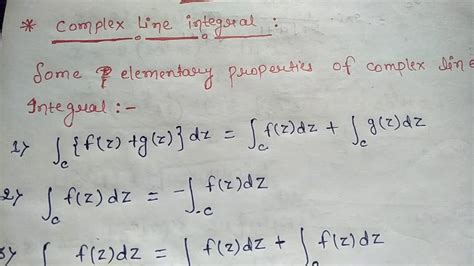 * Complex line integral :
Some elementary properties of complex line
Integral :-
1) ∫_C {f(z) + g(z)} dz = ∫_C f(z)dz + ∫_C g(z)dz
2) ∫_C f(z) dz = -∫_{-C} f(z)dz
∫ f(z)dz = ∫ f(z)dz + ∫ f(z)dz